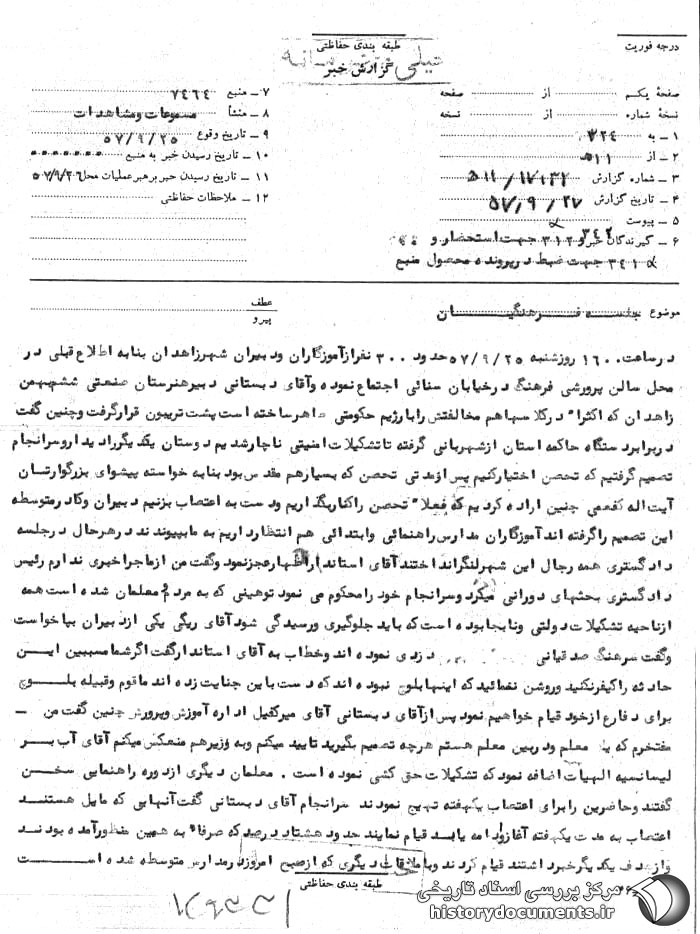 درجه فوریت
طبقه بندی حفاظتی
خیلی محرمانه
گزارش خبر
صفحهٔ یکم از صفحه
نسخهٔ شماره از نسخه
۱ ـ به ۳۲۴
۲ ـ از ۵۱۱
۳ ـ شماره گزارش ۱۷۰۳۲/ ۵۱۱
۴ ـ تاریخ گزارش ۵۷/۹/۲۷
۵ ـ پیوست
۶ ـ گیرندگان خبر و ۳۱۲ جهت استحضار و
۳۴۱ جهت ضبط در پرونده محصول منبع
۷ ـ منبع ۷۴۶۴
۸ ـ منشأ مسموعات ومشاهدات
۹ ـ تاریخ وقوع ۵۷/۹/۲۵
۱۰ ـ تاریخ رسیدن خبر به منبع
۱۱ ـ تاریخ رسیدن خبر برهبر عملیات محل ۵۷/۹/۲۶
۱۲ ـ ملاحظات حفاظتی
موضوع جلسه فرهنگیان
عطف
پیرو
در ساعت ۱۶۰۰ روز شنبه ۵۷/۹/۲۵ حدود ۳۰۰ نفر از آموزگاران ودبیران شهر زاهدان بنا به اطلاع قبلی در
محل سالن پرورشی فرهنگ در خیابان سنائی اجتماع نموده وآقای دبستانی دبیر هنرستان صنعتی ششم بهمن
زاهدان که اکثرا" در کلاسها هم مخالفتش را با رژیم حکومتی ظاهر ساخته است پشت تریبون قرار گرفت وچنین گفت
در برابر دستگاه حاکمه استان از شهربانی گرفته تا تشکیلات امنیتی ناچار شدیم دوستان یکدیگر را دیدار و سرانجام
تصمیم گرفتیم که تحصن اختیار کنیم پس از مدتی تحصن که بسیار هم مقدس بود بنا به خواسته پیشوای بزرگوارتسان
آیت اله کفعمی چنین اراده کردیم که فعلا" تحصن را کنار بگذاریم ودست به اعتصاب بزنیم دبیران وکادر متوسطه
این تصمیم را گرفته اند آموزگاران مدارس راهنمائی وابتدائی هم انتظار داریم به ما بپیوندند در هر حال در جلسه
دادگستری همه رجال این شهر لنگر انداختند آقای استاندار اظهار عجز نمود وگفت من از ماجرا خبری ندارم رئیس
دادگستری بحثهای دورانی میکرد وسرانجام خود را محکوم می نمود توهینی که به مردم و معلمان شده است همه
از ناحیه تشکیلات دولتی ونابجا بوده است که باید جلوگیری ورسیدگی شود آقای ریگی یکی از دبیران بپاخواست
وگفت سرهنگ صدقیانی دزدی نموده اند وخطاب به آقای استاندار گفت اگر شما مسببین ایسن
حادثه را کیفر نکنید وروشن ننمائید که اینها بلوچ نبوده اند که دست باین جنایت زده اند ما قوم وقبیله بلسوچ
برای دفاع از خود قیام خواهیم نمود پس از آقای دبستانی آقای میر کفیل اداره آموزش وپرورش چنین گفت من ـ
مفتخرم که یک معلم ودر بین معلم هستم هر چه تصمیم بگیرید تایید میکنم وبه وزیر هم منعکس میکنم آقای آب بسر
لیسانسیه الهیات اضافه نمود که تشکیلات حق کشی نموده است . معلمان دیگری از دوره راهنمایی سخسن
گفتند وحاضرین را برای اعتصاب یکهفته تهیج نمودند سرانجام آقای دبستانی گفت آنهایی که مایل هستنسد
اعتصاب به مدت یکهفته آغاز وادامه یابد قیام نمایند حدود هشتاد درصد که صرفا" به همین منظور آمده بودنسد
واز هدف یکدیگر خبر داشتند قیام کردند وبا ملاقات دیگری که از صبح امروز در مدارس متوسطه شده است
طبقه بندی حفاظتی
مرکز بررسی اسناد تاریخی
historydocuments.ir